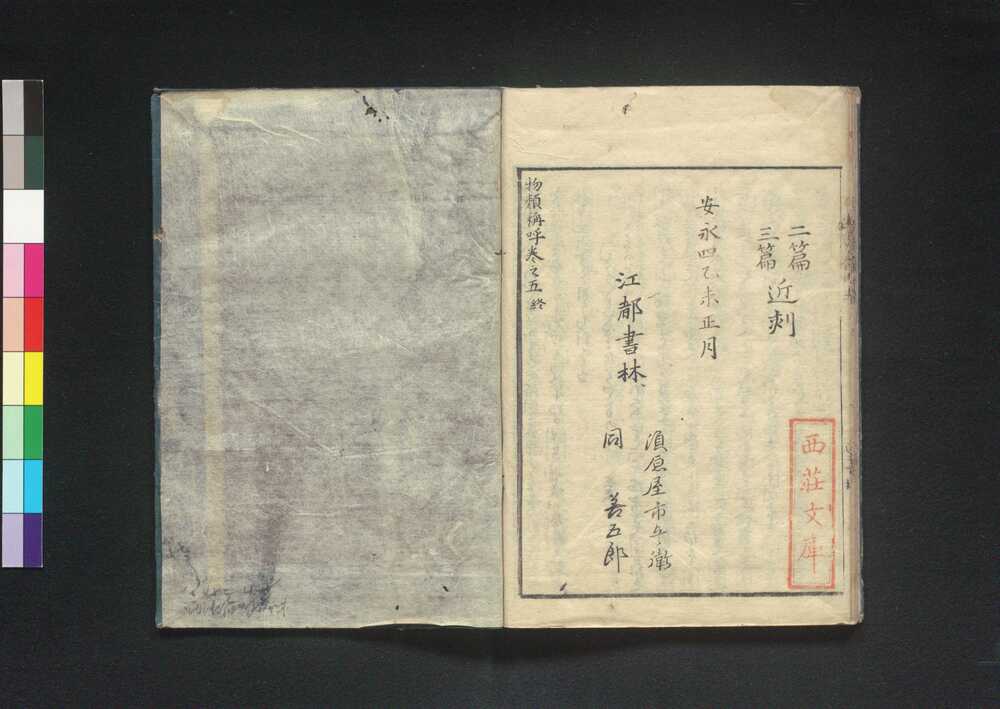 二篇
三篇
近刻
安永四乙未正月
江都書林
須原屋市兵衛
同 善五郎
物類称呼巻之五終
西荘文庫